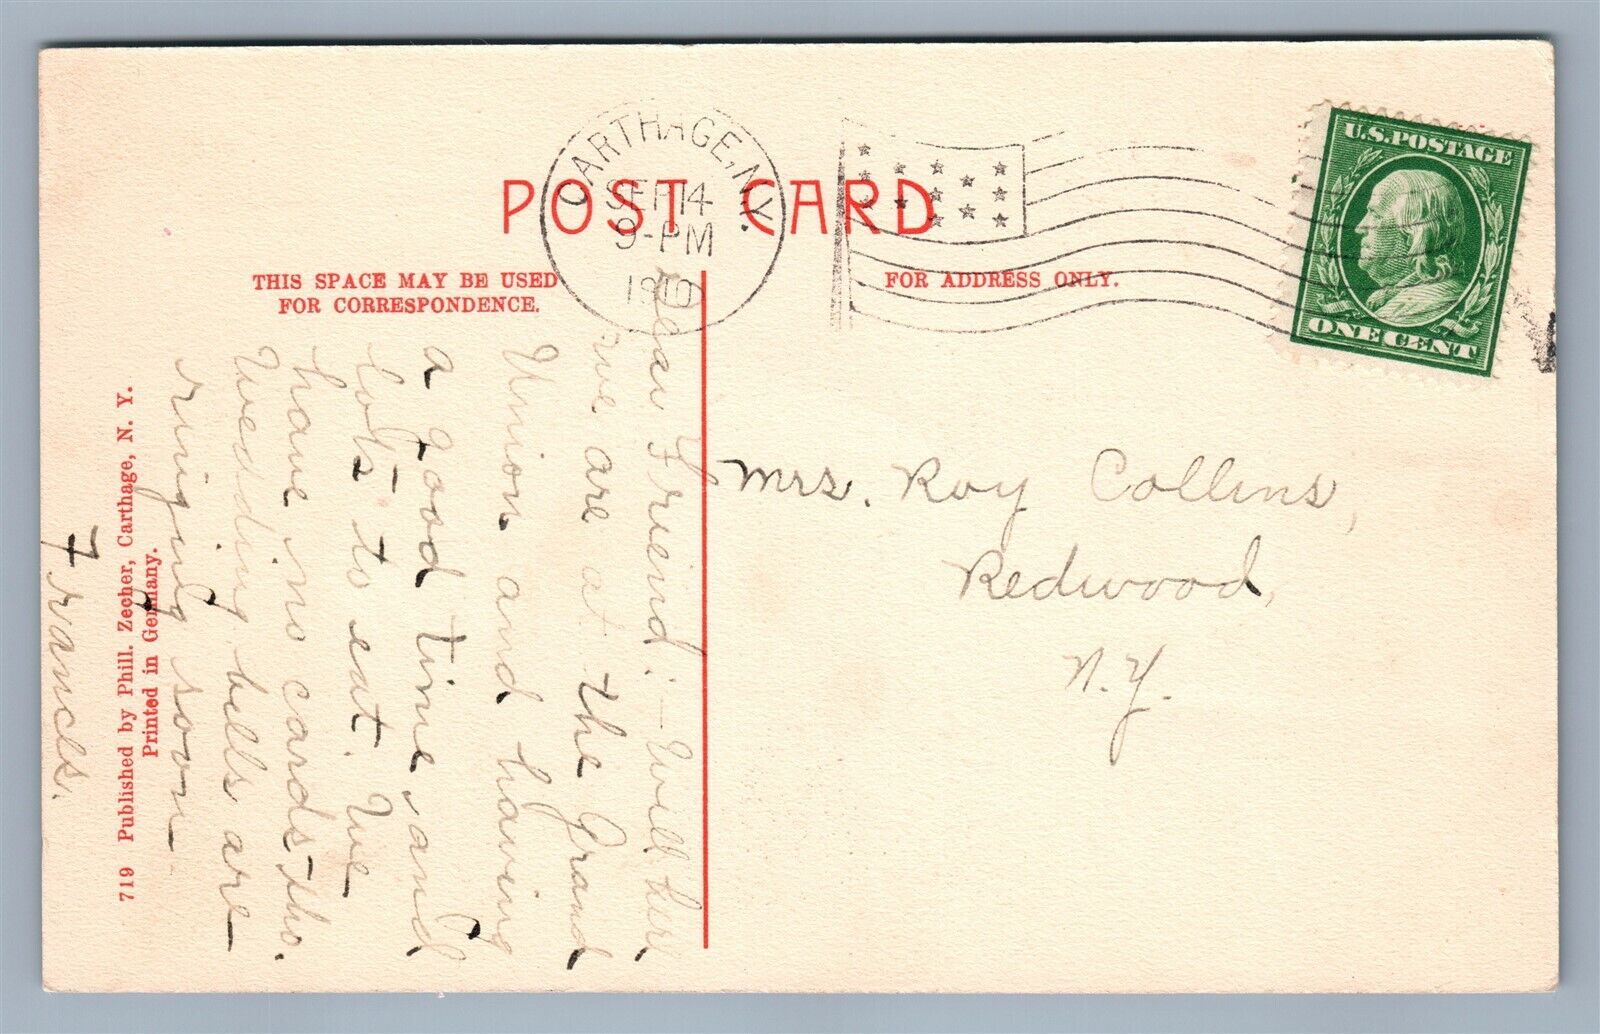 POST CARD
THIS SPACE MAY BE USED
FOR CORRESPONDENCE.
FOR ADDRESS ONLY.
CARTHAGE, N.Y.
SEP 14
9-PM
1910
U.S. POSTAGE
ONE CENT
Dear Friend:- Well here
we are at the Grand
Union and having
a good time, and
lots to eat. We
have no cards tho.
Wedding bells are
ringing soon
Frances.
Mrs. Roy Collins,
Redwood,
N.Y.
719 Published by Phill. Zecher, Carthage, N. Y.
Printed in Germany.